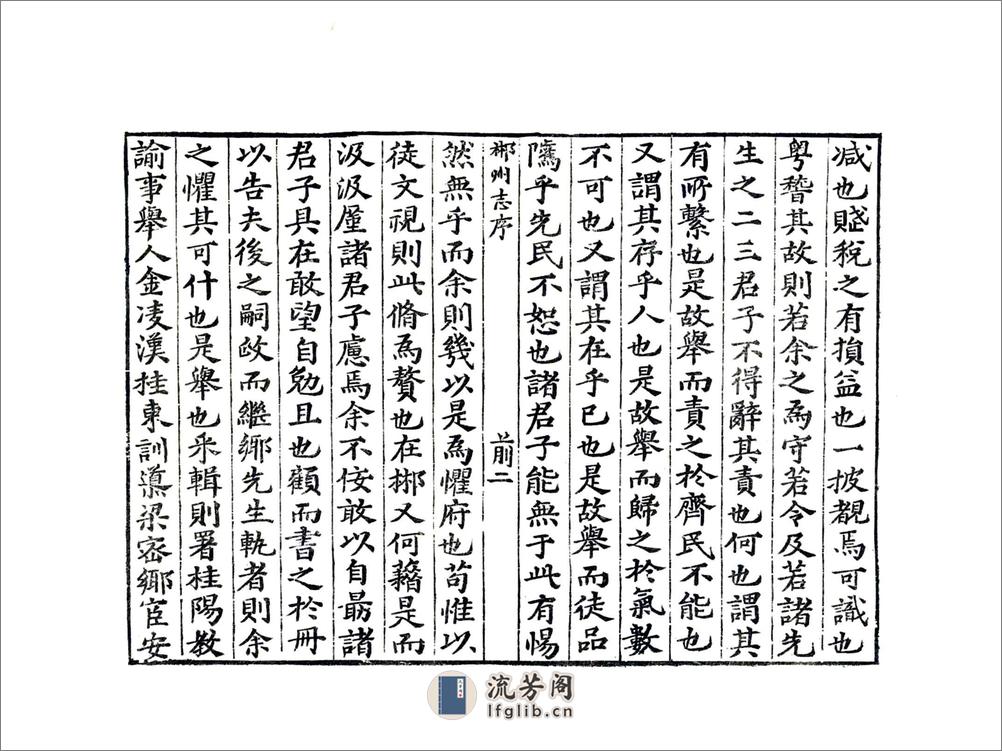 減也賦稅之有損益也一披覩焉可識也
粤稽其故則若余之爲守若令及若諸先
生之二三君子不得辭其責也何也謂其
有所繫也是故舉而責之於齊民不能也
又謂其存乎人也是故舉而歸之於氣數
不可也又謂其在乎已也是故舉而徒品
隲乎先民不恕也諸君子能無于此有惕
郴州志序 前二
然無乎而余則幾以是爲懼府也苟惟以
徒文視則此脩爲贅也在郴又何籍是而
汲汲厪諸君子慮焉余不佞敢以自勗諸
君子具在敢望自勉且也顧而書之於冊
以告夫後之嗣政而繼鄉先生軌者則余
之懼其可什也是舉也釆輯則署桂陽教
諭事舉人金凌漢桂東訓導梁宻鄉宦安
流芳阁
lfglib.cn